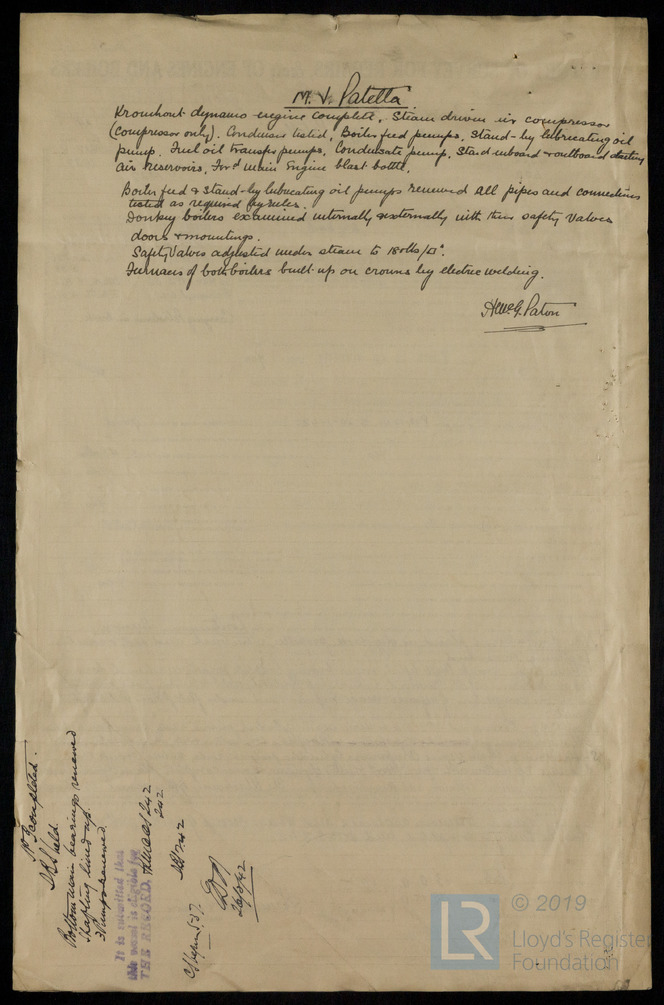 M.V. Patella.
Kromhout dynamo engine complete. Steam driven air compressor
(compressor only). Condenser tested, Boiler feed pumps, Stand-by lubricating oil
pump. Fuel oil transfer pumps, Condensate pump, Starboard inboard & outboard starting
air reservoirs, For'd main Engine blast bottle.
Boiler feed & stand-by lubricating oil pumps renewed all pipes and connections
tested as required by rules.
Donkey boilers examined internally & externally with their safety valves
doors & mountings.
Safety Valves adjusted under steam to 180 lbs/□".
Furnaces of both boilers built up on crowns by electric welding.
H. G. Paton
completed.
DBS held.
Bottom main bearings renewed
Shafting lined up.
3 Pumps renewed
It is submitted that
this vessel is eligible for
THE RECORD. 2.42
2.42
DBS 2.42
CS 5.37.
26/3/42
© 2019
LR
Lloyd's Register
Foundation